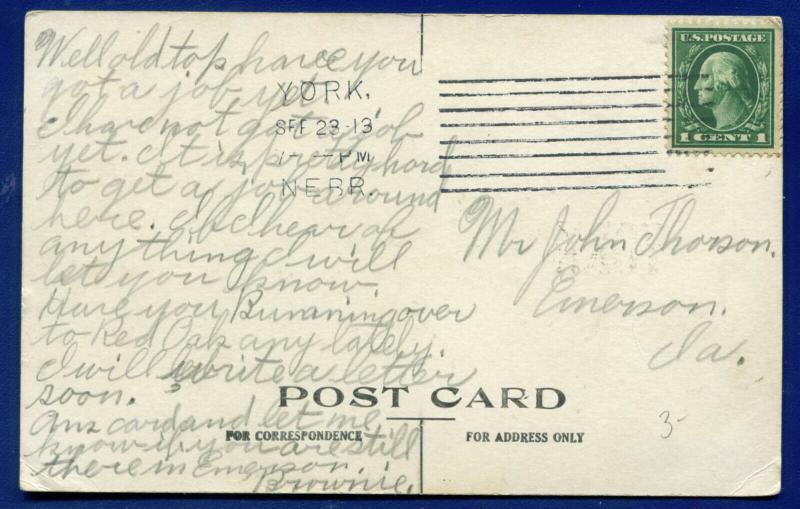 Well old top have you
got a job yet.
I have not got a job
yet. It is pretty hard
to get a job around
here. If I hear of
any thing I will
let you know.
Have you Bunaning over
to Red Oak any lately.
I will write a letter
soon.
Ans card and let me
know if you are still
there in Emerson.
Brownie.
YORK,
SEP 23-13
PM
NEBR.
U.S. POSTAGE
1 CENT 1
Mr John Thorson.
Emerson.
Ia.
POST CARD
FOR CORRESPONDENCE
FOR ADDRESS ONLY
3-